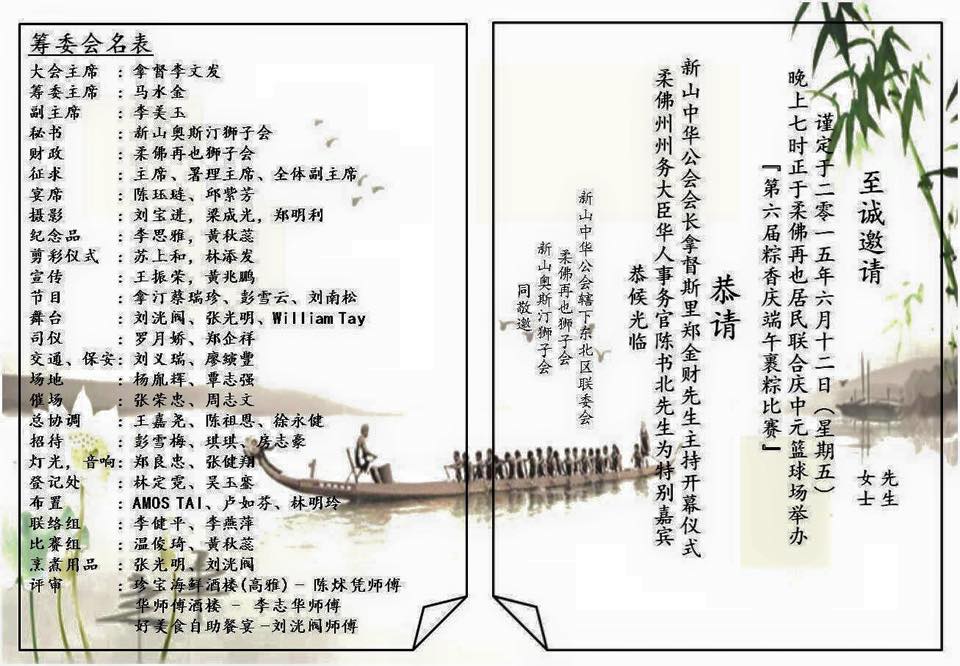 筹委会名表
大会主席 : 拿督李文发
筹委主席 : 马水金
副主席 : 李美玉
秘书 : 新山奥斯汀狮子会
财政 : 柔佛再也狮子会
征求 : 主席、署理主席、全体副主席
宴席 : 陈珏琏、邱紫芳
摄影 : 刘宝进，梁成光，郑明利
纪念品 : 李思雅，黄秋蕊
剪彩仪式 : 苏上和，林添发
宣传 : 王振荣，黄兆鹏
节目 : 拿汀蔡瑞珍、彭雪云、刘南松
舞台 : 刘洸阀、张光明、William Tay
司仪 : 罗月娇、郑企祥
交通、保安: 刘义瑞、廖缤豐
场地 : 杨胤辉、覃志强
催场 : 张荣忠、周志文
总协调 : 王嘉尧、陈祖恩、徐永健
招待 : 彭雪梅、琪琪、房志豪
灯光，音响: 郑良忠、张健翔
登记处 : 林定霓、吴玉銮
布置 : AMOS TAI、卢如芬、林明玲
联络组 : 李健平、李燕萍
比赛组 : 温俊琦、黄秋蕊
烹煮用品 : 张光明、刘洸阀
评审 : 珍宝海鲜酒楼(高雅) - 陈炑凭师傅
华师傅酒楼 - 李志华师傅
好美食自助餐宴 -刘洸阀师傅
至诚邀请
先生
女士
谨定于二零一五年六月十二日（星期五）
晚上七时正于柔佛再也居民联合庆中元篮球场举办
『第六届粽香庆端午裹粽比赛』
恭请
新山中华公会会长拿督斯里郑金财先生主持开幕仪式
柔佛州州务大臣华人事务官陈书北先生为特别嘉宾
恭候光临
新山中华公会辖下东北区联委会
柔佛再也狮子会
新山奥斯汀狮子会
同敬邀